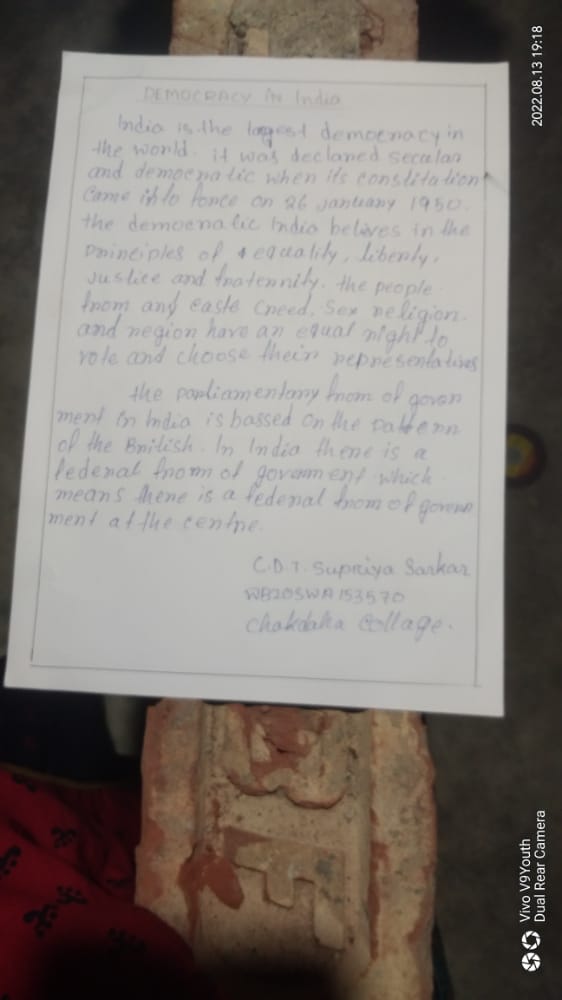 DEMOCRACY in India
India is the lagest democracy in
the world. it was declared secular
and democratic when its constitation
Came into force on 26 january 1950.
the democratic India belives in the
principles of equality, liberty,
justice and fraternity. the people
from any caste creed, sex religion.
and region have an equal right to
vote and choose their representatives
the parliamentary from of govern
ment in India is bassed on the pattern
of the British. In India there is a
federal from of goverment which
means there is a federal from of govern
ment at the centre.
C.D.T. Supriya Sarkar
WB20SWA153570
Chakdaha Collage.
2022.08.13 19:18
Vivo V9Youth
Dual Rear Camera